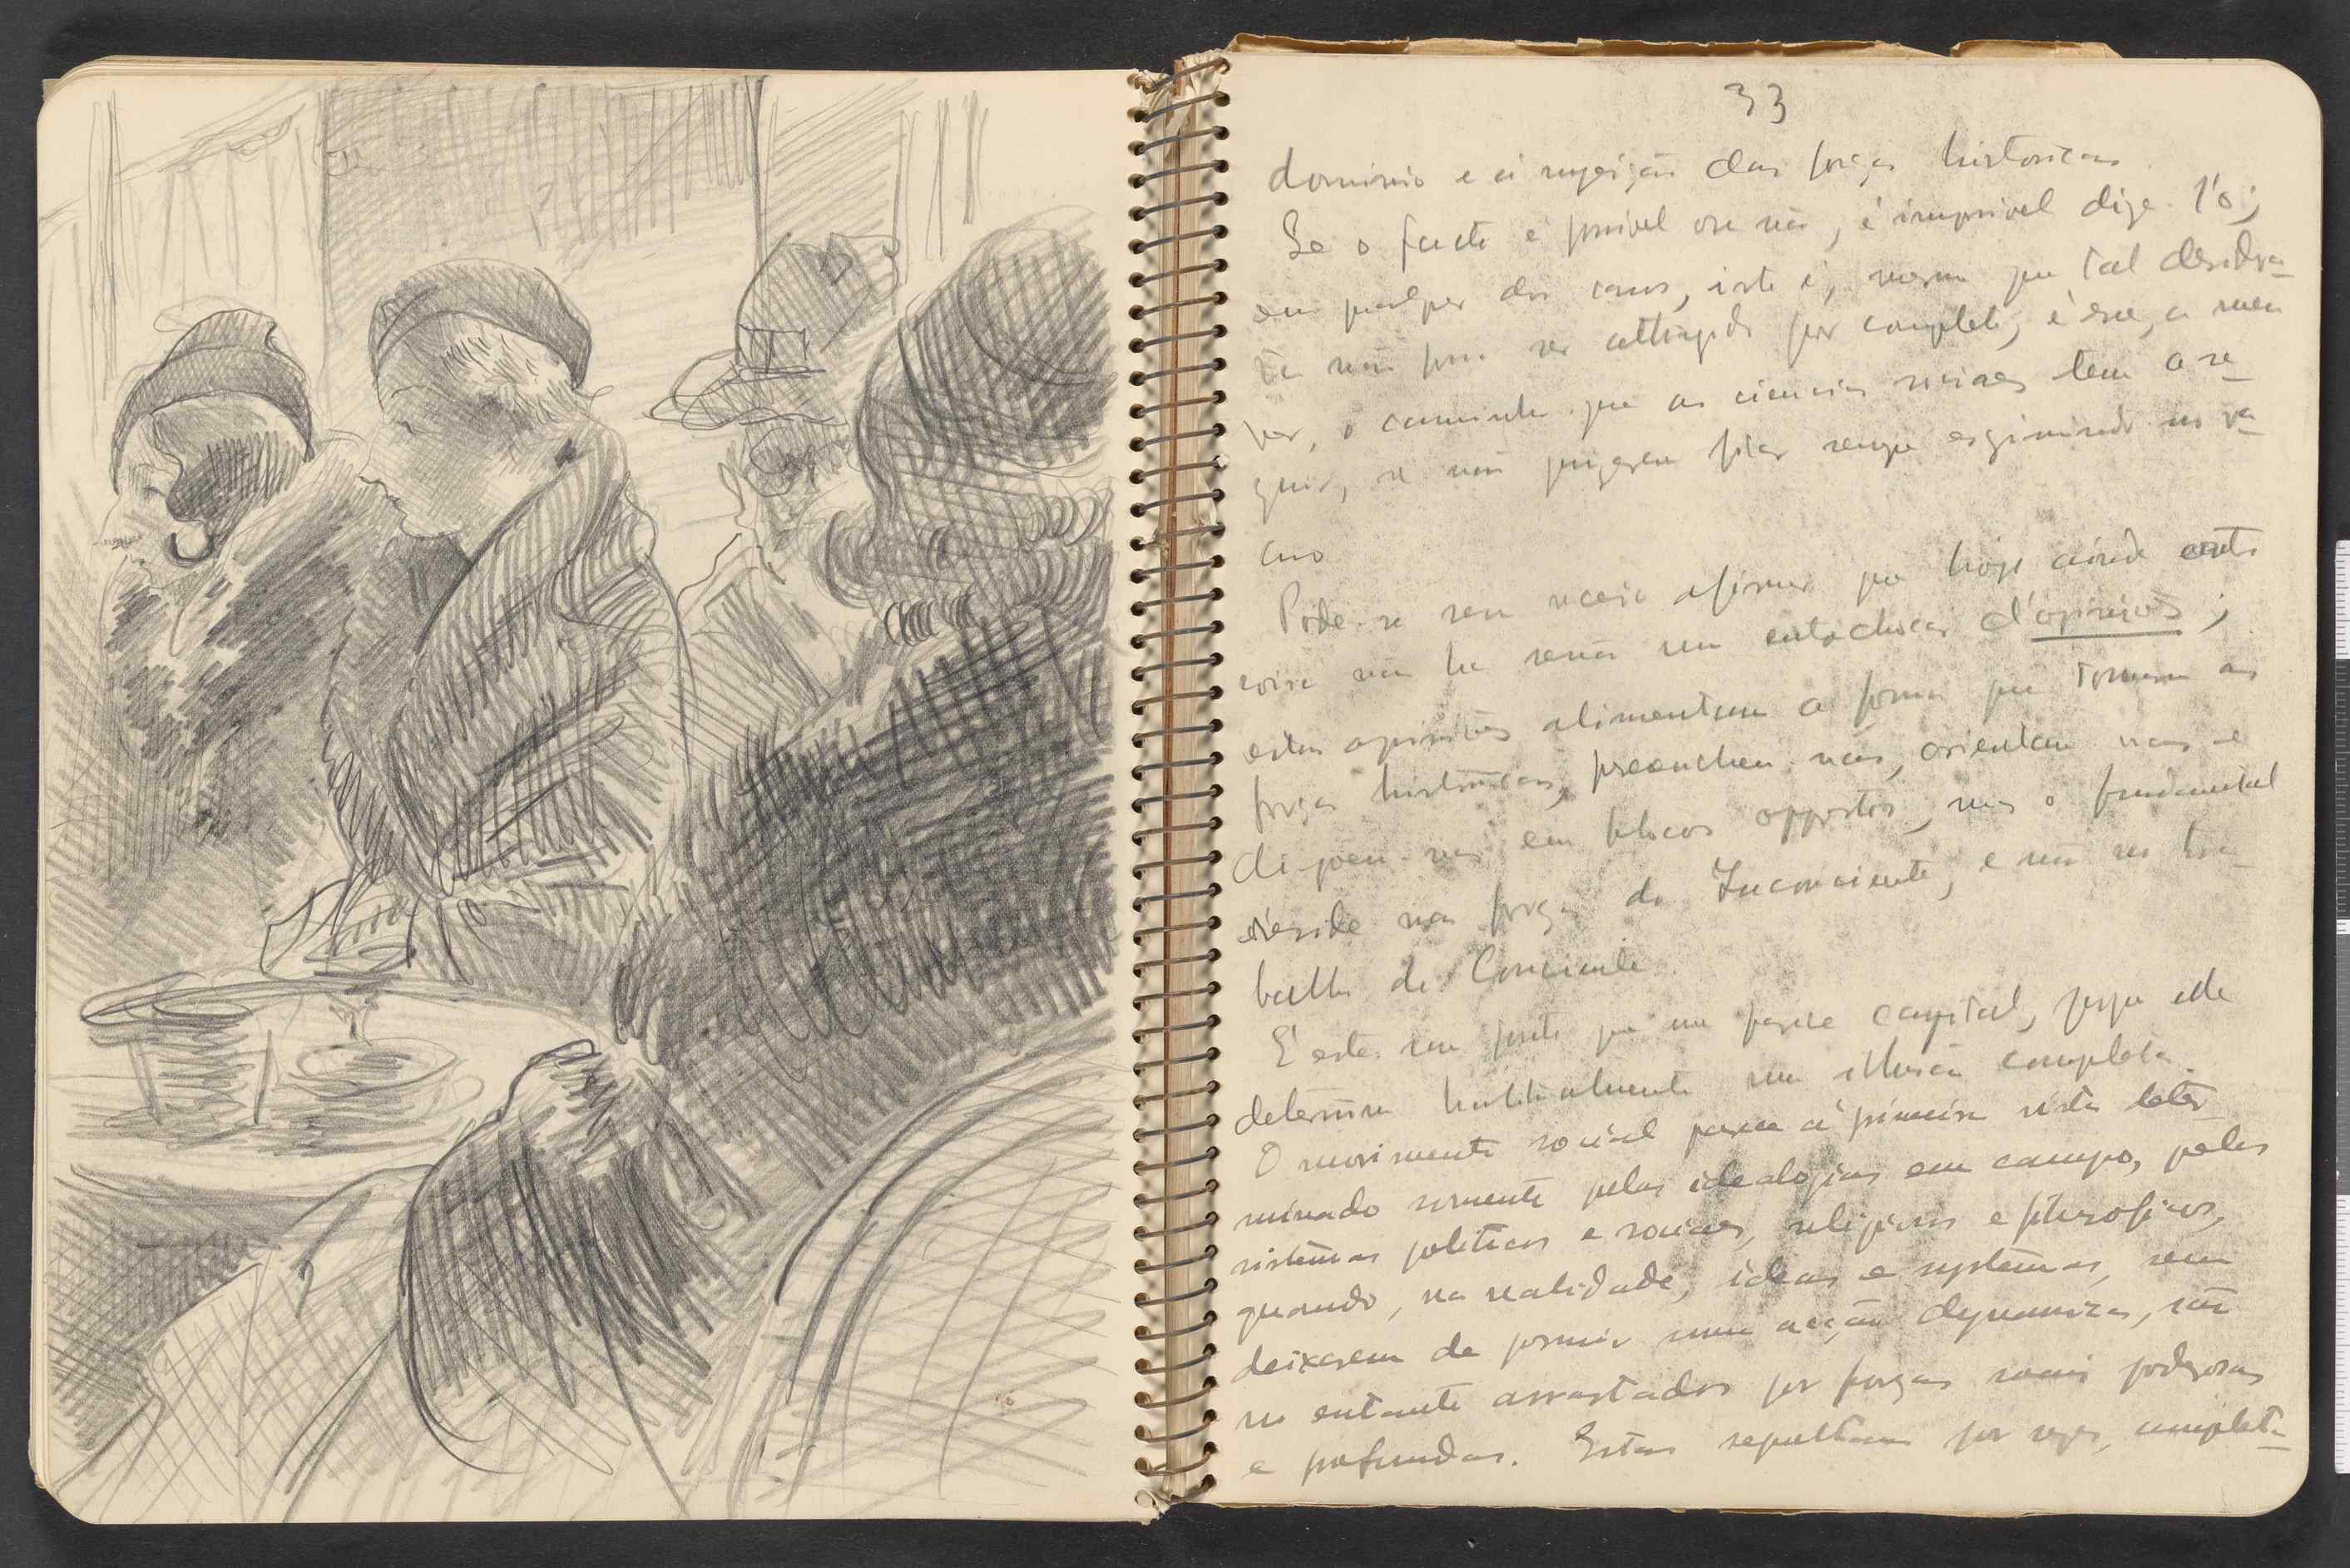 33
dominio e á sugeição das forças historicas
Se o facto é possivel ou não, é impossivel dize-l'o;
em qualquer dos casos, isto é, mesmo que tal desidra-
ta não possa ser attingido por completo, é esse, a meu
ver, o caminho que as ciencias sociaes tem a se-
guir, se não quizerem ficar sempre esgrimindo no va-
cuo
Pode-se sem receio afirmar que hoje ainda outra
coisa não ha senão um entrechocar d'opiniões;
estas opiniões alimentam a forma que tomam as
forças historicas, preenchem-nas, orientam-nas e
dispoem-nas em blocos oppostos, mas o fundamental
reside nas forças do Inconsciente, e não no tra-
balho do Consciente.
É este um ponto que me parece capital, porque ele
determina habitualmente uma illusão completa.
O movimento social parece á primeira vista deter-
minado somente pelas idealogias em campo, pelos
sistemas politicos e sociaes, religiosos e filosoficos,
quando, na realidade, ideas e systemas, sem
deixarem de possuir uma acção dynamica, são
no entanto arrastados por forças mais poderosas
e profundas. Estas sepultam por vezes, completa-